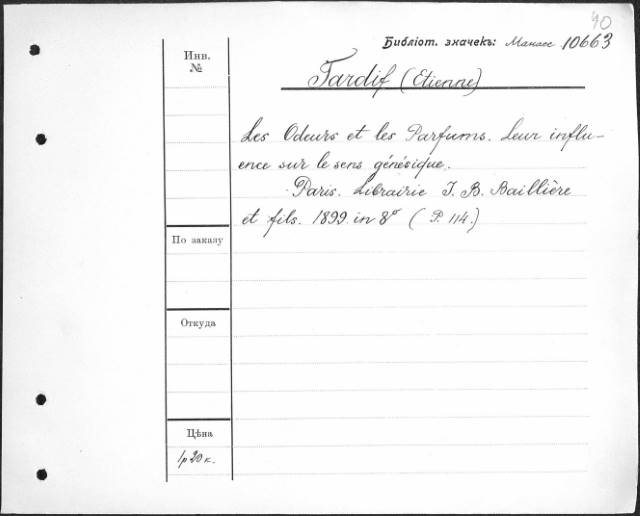 40
Библіот. значекъ: Манасс 10663
Инв. №
Tardif (Etienne)
Les Odeurs et les Parfums. Leur influ-
ence sur le sens génésique.
Paris. Librairie J. B. Baillière
et fils. 1899. in 8º (P. 114.)
По заказу
Откуда
Цѣна
1р 20 к.